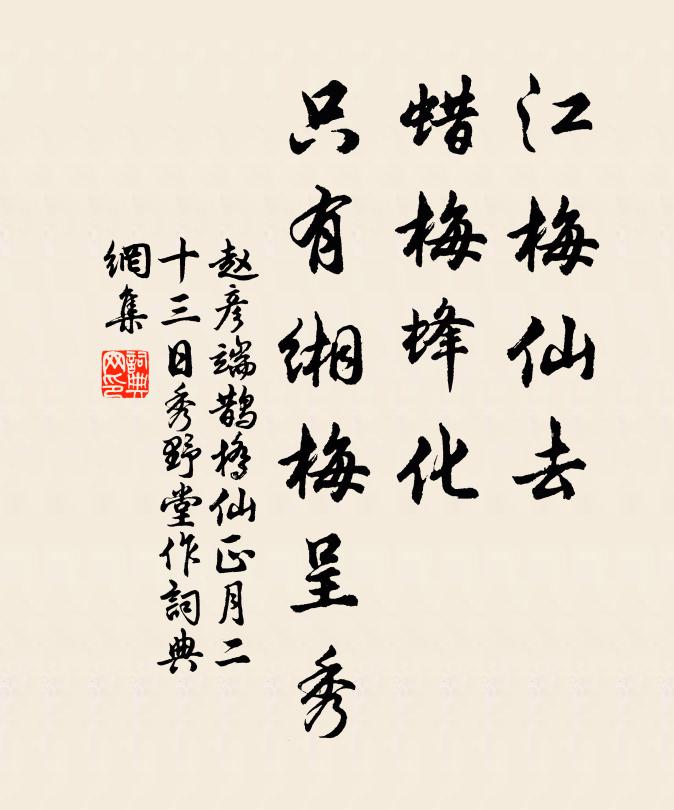 江梅仙去
蜡梅蜂化
只有缃梅呈秀
赵彦端鹊桥仙正月二
十三日秀野堂作詞典
網集
詞典
网印